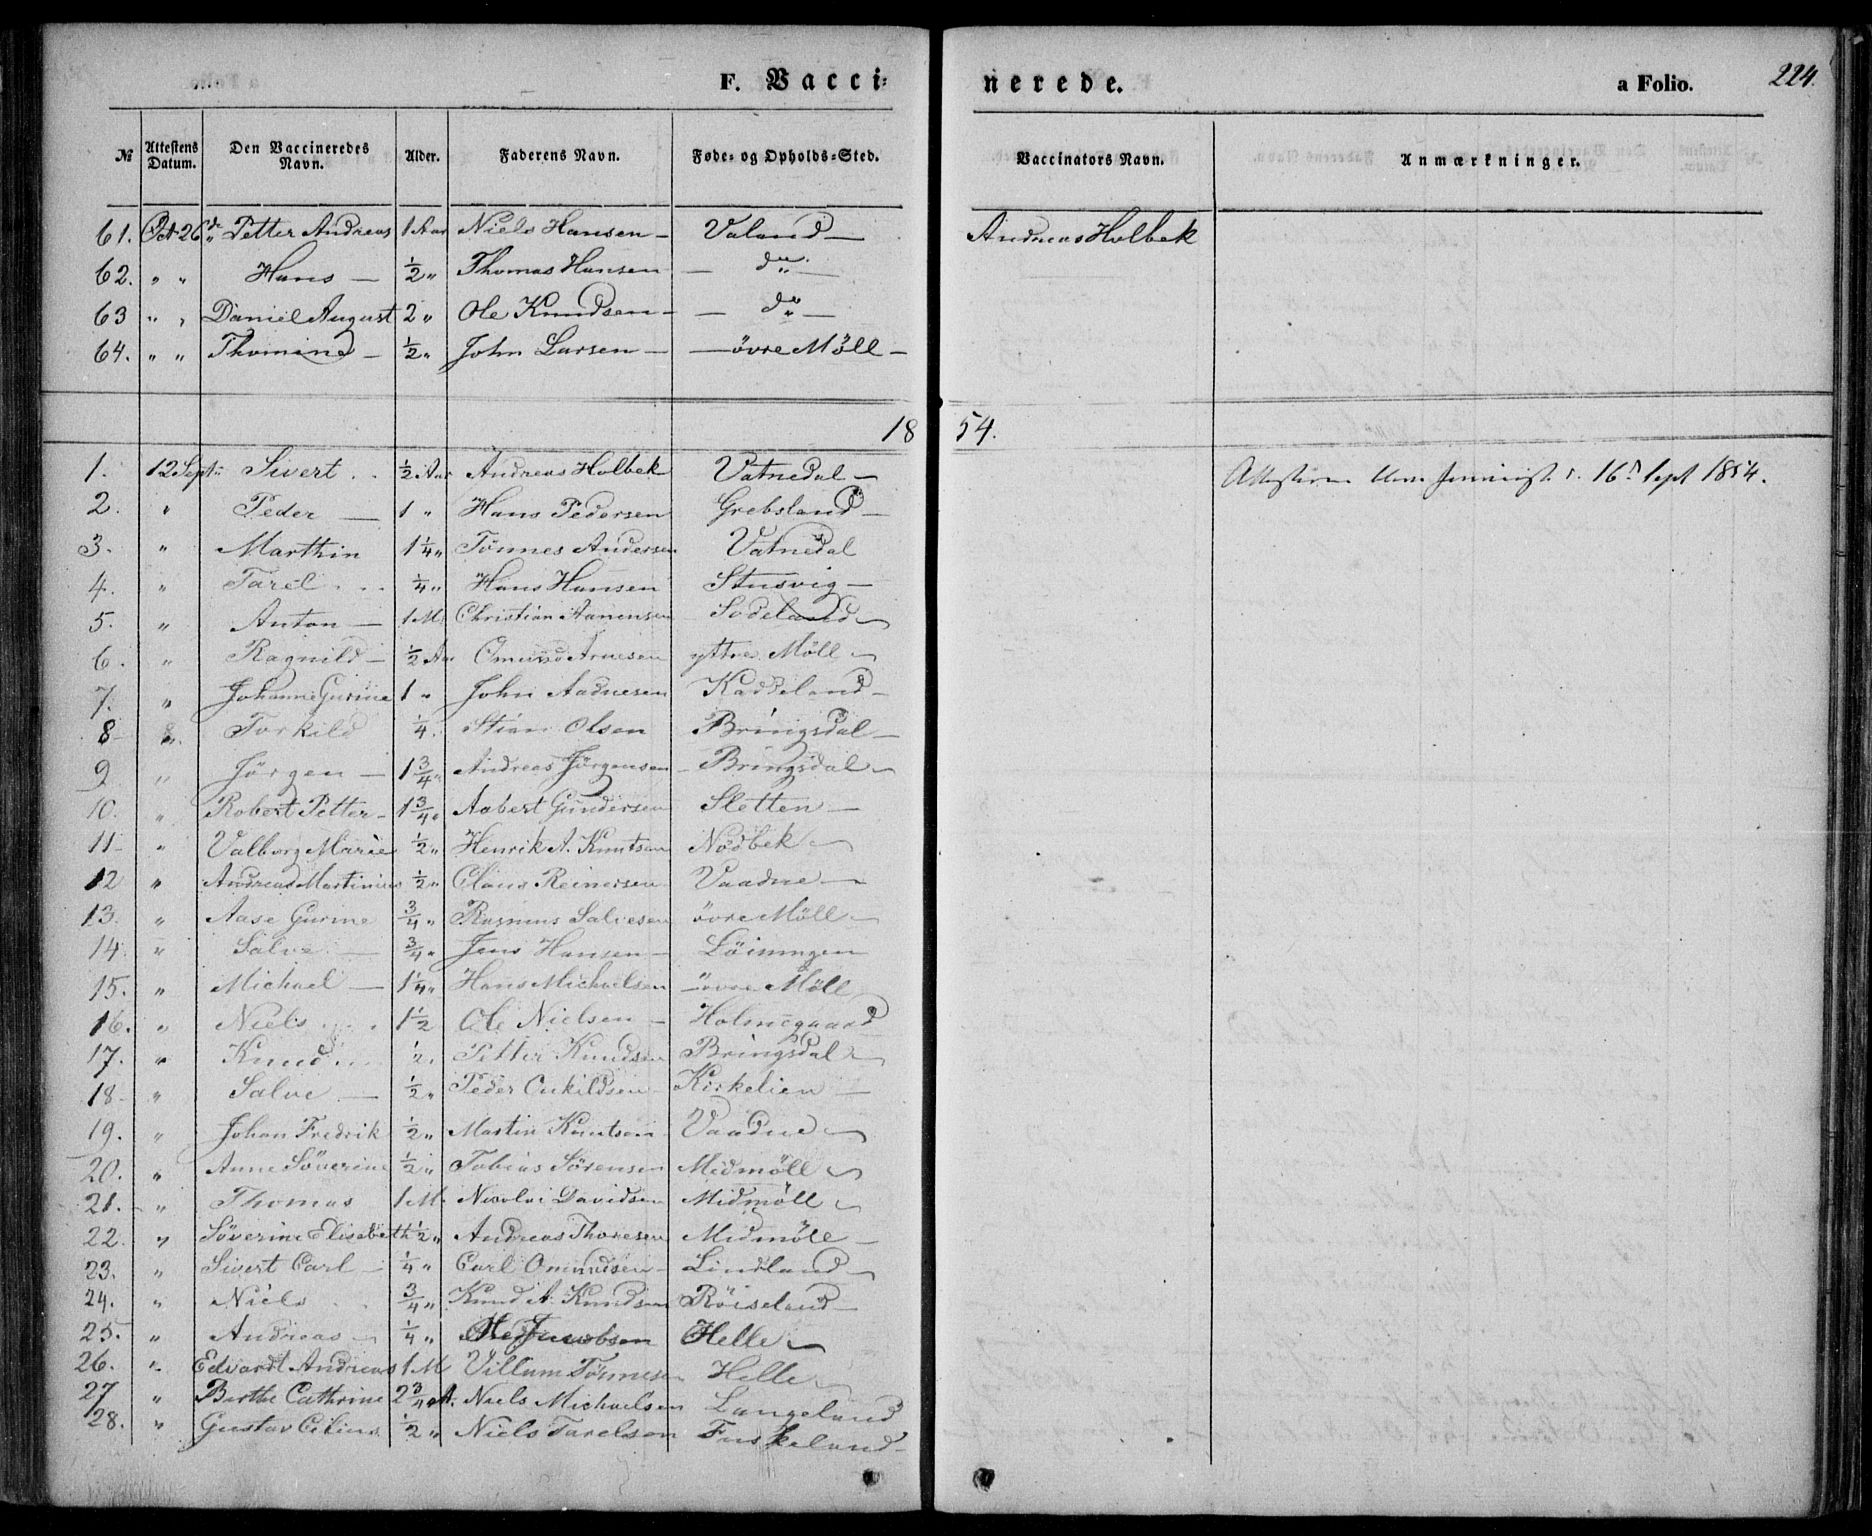 F. Vaccinerede. a Folio. 224.
№ Attestens Datum. Den Vaccineredes Navn. Alder. Faderens Navn. Føde- og Opholds-Sted. Vaccinators Navn. Anmærkninger.
61. Oct 26de Petter Andreas 1 Aar Niels Hansen – Valand – Andreas Holbek
62. " " Hans – ½ " Thomas Hansen – do –
63 " " Daniel August 2 " Ole Knudsen – – do –
64. " " Thomine – ½ " John Larsen – – övre Möll –
1854.
1. 12 Sept: Sivert ½ Aar Andreas Holbek Vatnedal – 16d Sept 1854.
2. " Peder – 1 " Hans Pedersen Grebsland –
3. " Marthin 1¼ " Tönnes Andersen Vatnedal
4. " Tarel ¼ " Hans Hansen Stusvig –
5. " Anton – 1 M. Christian Aanensen Sodeland –
6. " Ragnild – ½ Aar Omund Arnesen yttre Möll –
7. " Johanne Gurine 1 " John Aadnesen Kadseland –
8 " Torkild ¼ Stian Olsen Bringsdal –
9 " Jörgen – 1¾ " Andreas Jörgensen – Bringsdal –
10. " Robert Petter – 1¾ " Aabert Gundersen Sletten –
11 " Valborg Marie ½ " Henrik A. Knutsen Nodbek –
12 " Andreas Martinius ½ " Claus Reinersen Vaadne –
13. " Aase Gurine ¾ " Rasmus Salvesen övre Möll –
14. " Salve – ¾ " Jens Hansen – Löiningen
15. " Michael – 1¼ " Hans Michaelsen – övre Möll
16. " Niels 1½ Ole Nielsen – Holmegaard
17. " Knud ½ Petter Knudsen Bringsdal –
18 " Salve – ½ " Peder Eukildsen – Kirkelien –
19. " Johan Fredrik ½ " Martin Knutsen Vaadne –
20. " Anne Söverine ½ " Tobias Sörensen Midmöll –
21. " Thomas 1 M. Nicolai Davidsen Midmöll –
22. " Söverine Elisabeth ½ " Andreas Thoresen Midmöll –
23. " Sivert Carl – ¼ " Carl Omundsen – Lindland –
24. " Niels ¾ " Knud A. Knudsen Röiseland –
25. " Andreas – ¼ " Ole Jacobsen Helle –
26. " Edvardt Andreas 1 M Villum Tönnesen Helle –
27 " Berthe Cathrine 2¾ A. Niels Michaelsen Langeland
28. " Gustav Cilius ½ " Niels Tarelsen Fuskeland –